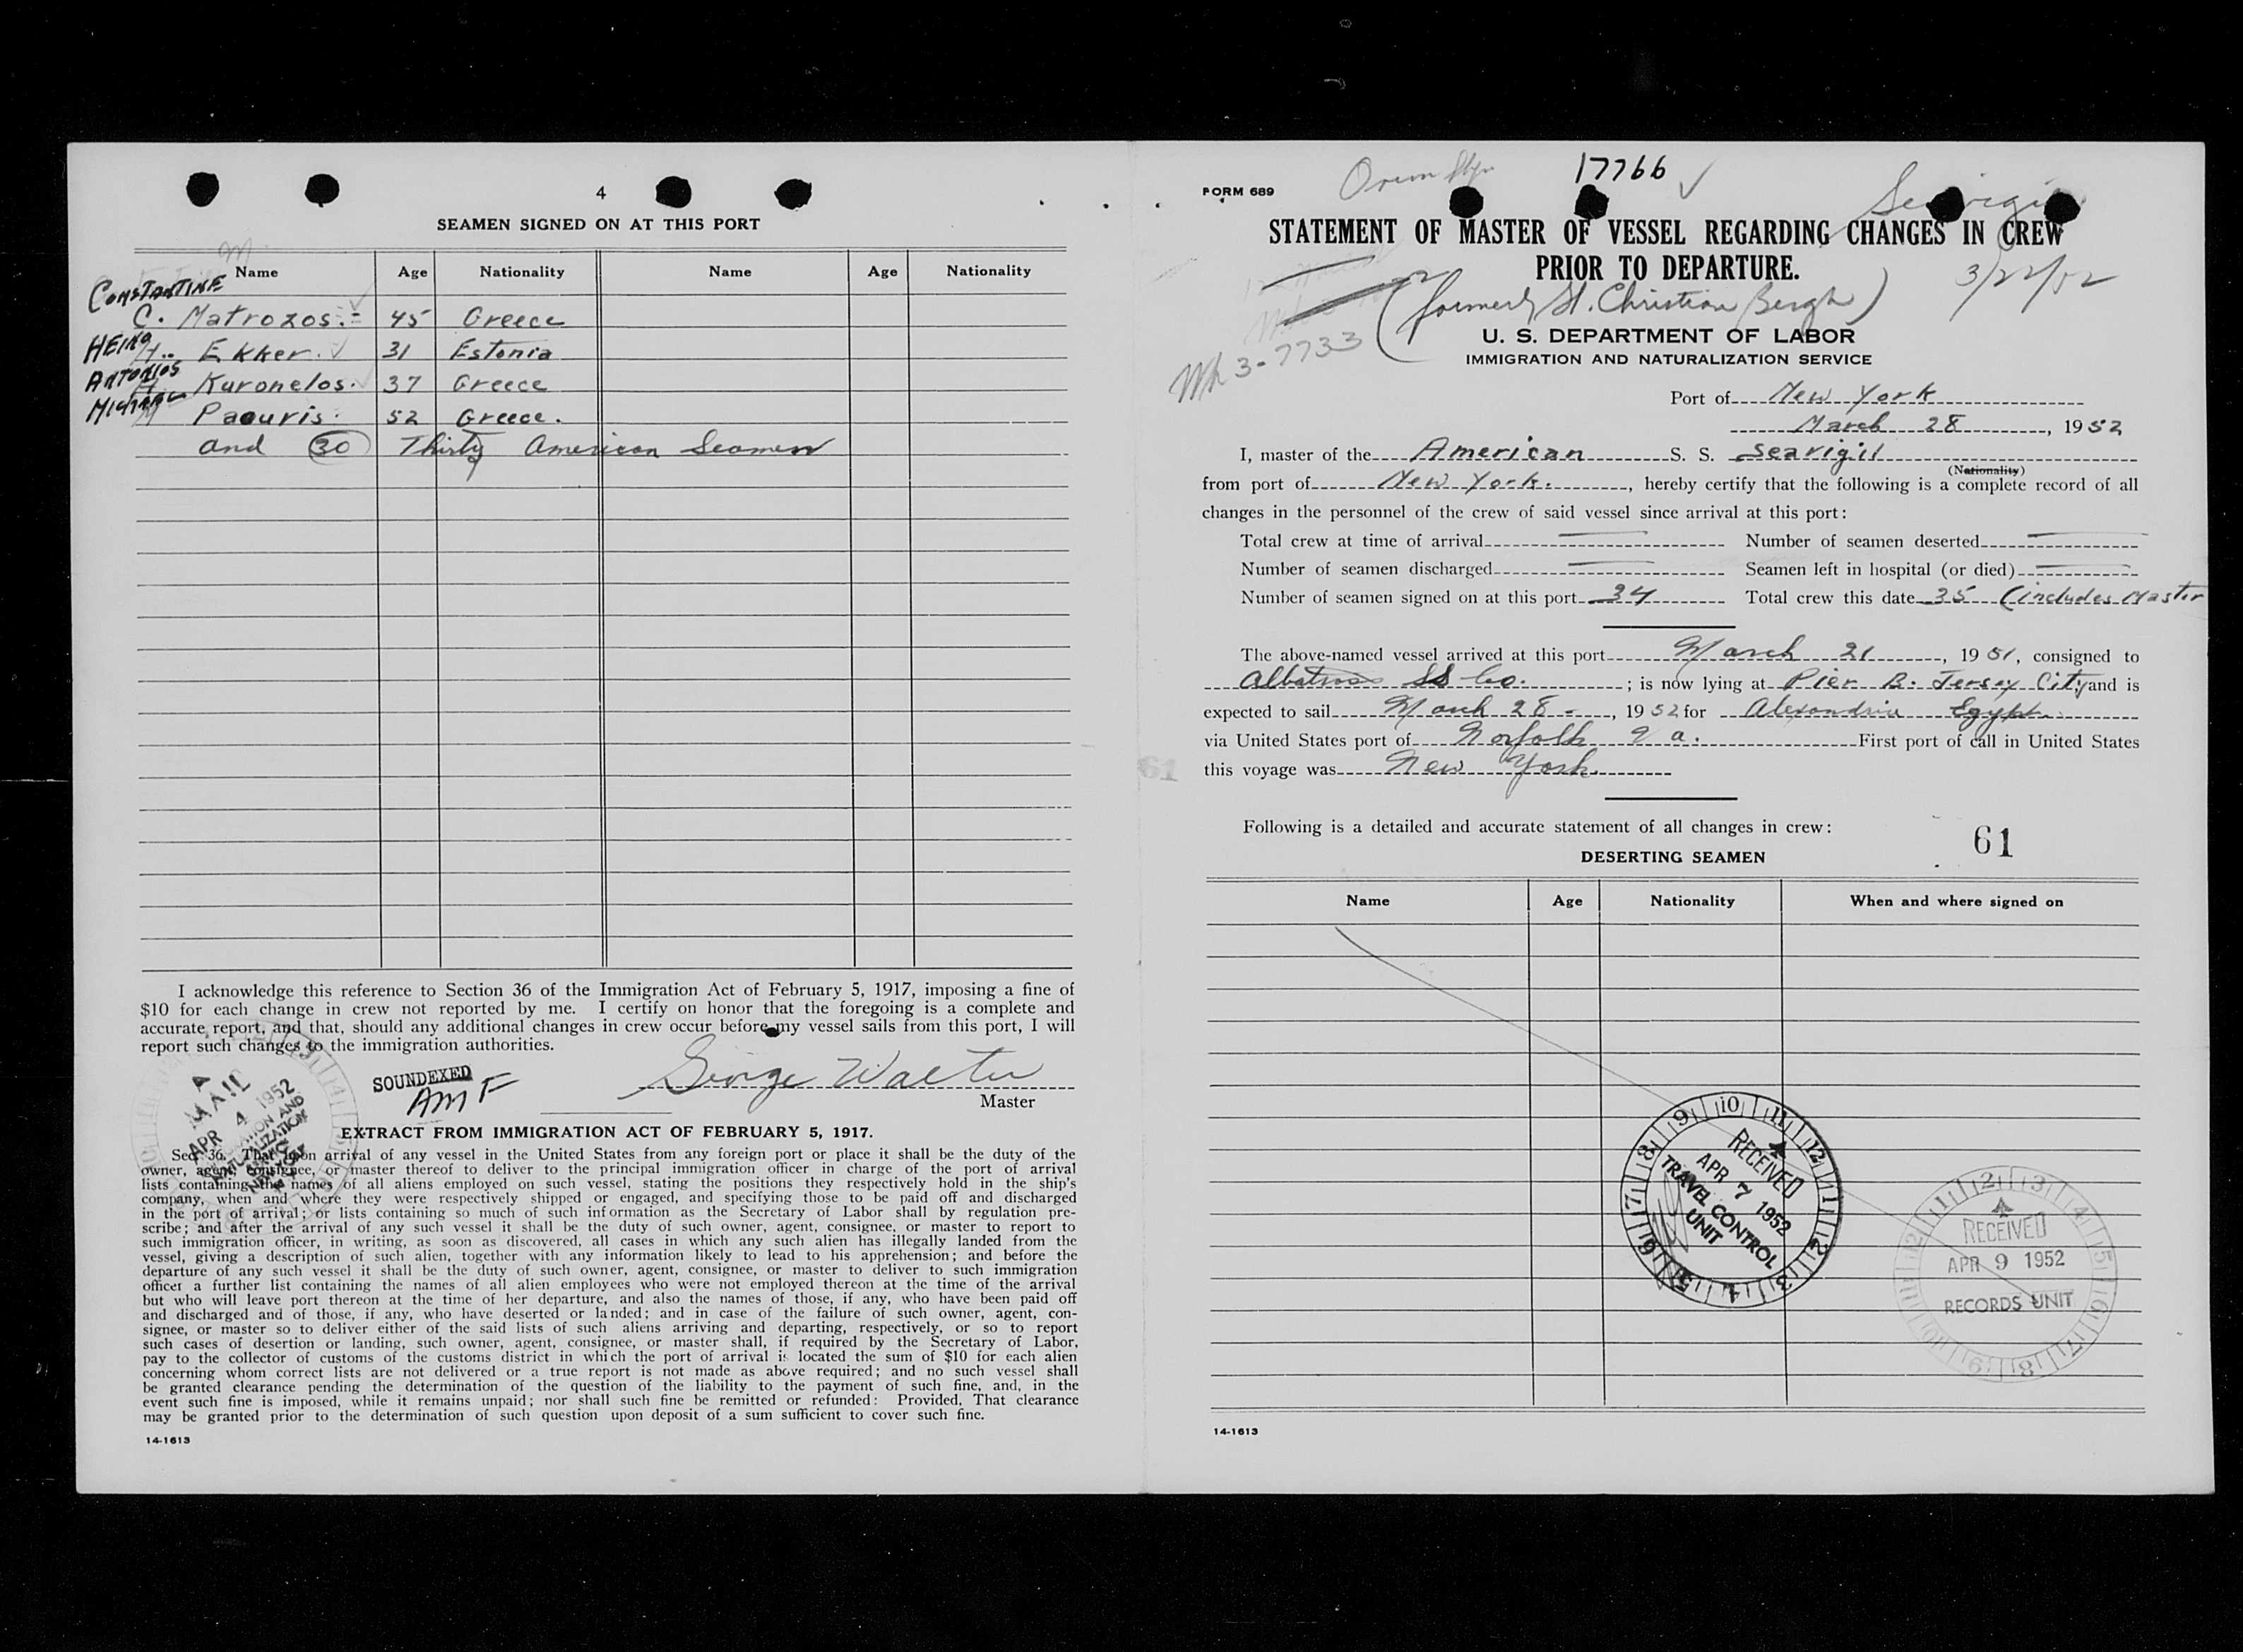 4
SEAMEN SIGNED ON AT THIS PORT
Name Age Nationality Name Age Nationality
CONSTANTINE
C. Matrozos. 45 Greece
HEINO
H. Ekker. 31 Estonia
ANTONIOS
A. Kuronelos. 37 Greece
MICHAEL
M Paouris. 52 Greece.
and 30 Thirty American Seamen
I acknowledge this reference to Section 36 of the Immigration Act of February 5, 1917, imposing a fine of
$10 for each change in crew not reported by me. I certify on honor that the foregoing is a complete and
accurate report, and that, should any additional changes in crew occur before my vessel sails from this port, I will
report such changes to the immigration authorities.
SOUNDEXED
AMF
George Walter
Master
MAIL
APR 4 1952
EXTRACT FROM IMMIGRATION ACT OF FEBRUARY 5, 1917.
Sec. 36. That upon arrival of any vessel in the United States from any foreign port or place it shall be the duty of the
owner, agent, consignee, or master thereof to deliver to the principal immigration officer in charge of the port of arrival
lists containing the names of all aliens employed on such vessel, stating the positions they respectively hold in the ship's
company, when and where they were respectively shipped or engaged, and specifying those to be paid off and discharged
in the port of arrival; or lists containing so much of such information as the Secretary of Labor shall by regulation pre-
scribe; and after the arrival of any such vessel it shall be the duty of such owner, agent, consignee, or master to report to
such immigration officer, in writing, as soon as discovered, all cases in which any such alien has illegally landed from the
vessel, giving a description of such alien, together with any information likely to lead to his apprehension; and before the
departure of any such vessel it shall be the duty of such owner, agent, consignee, or master to deliver to such immigration
officer a further list containing the names of all alien employees who were not employed thereon at the time of the arrival
but who will leave port thereon at the time of her departure, and also the names of those, if any, who have been paid off
and discharged and of those, if any, who have deserted or landed; and in case of the failure of such owner, agent, con-
signee, or master so to deliver either of the said lists of such aliens arriving and departing, respectively, or so to report
such cases of desertion or landing, such owner, agent, consignee, or master shall, if required by the Secretary of Labor,
pay to the collector of customs of the customs district in which the port of arrival is located the sum of $10 for each alien
concerning whom correct lists are not delivered or a true report is not made as above required; and no such vessel shall
be granted clearance pending the determination of the question of the liability to the payment of such fine, and, in the
event such fine is imposed, while it remains unpaid; nor shall such fine be remitted or refunded: Provided, That clearance
may be granted prior to the determination of such question upon deposit of a sum sufficient to cover such fine.
14-1613
FORM 689
17766
STATEMENT OF MASTER OF VESSEL REGARDING CHANGES IN CREW
PRIOR TO DEPARTURE.
3/22/52
(formerly St. Christian Bergh)
Wh 3-7733
U. S. DEPARTMENT OF LABOR
IMMIGRATION AND NATURALIZATION SERVICE
Port of New York
March 28, 1952
I, master of the American S. S. Seavigil
(Nationality)
from port of New York., hereby certify that the following is a complete record of all
changes in the personnel of the crew of said vessel since arrival at this port:
Total crew at time of arrival Number of seamen deserted
Number of seamen discharged Seamen left in hospital (or died)
Number of seamen signed on at this port 34 Total crew this date 35 (includes Master
The above-named vessel arrived at this port March 21, 1951, consigned to
Albatross SS Co.; is now lying at Pier B. Jersey City and is
expected to sail March 28 -, 1952 for Alexandria Egypt.
via United States port of Norfolk Va. First port of call in United States
this voyage was New York.
61
Following is a detailed and accurate statement of all changes in crew:
61
DESERTING SEAMEN
Name Age Nationality When and where signed on
RECEIVED
APR 7 1952
TRAVEL CONTROL
UNIT
RECEIVED
APR 9 1952
RECORDS UNIT
14-1613